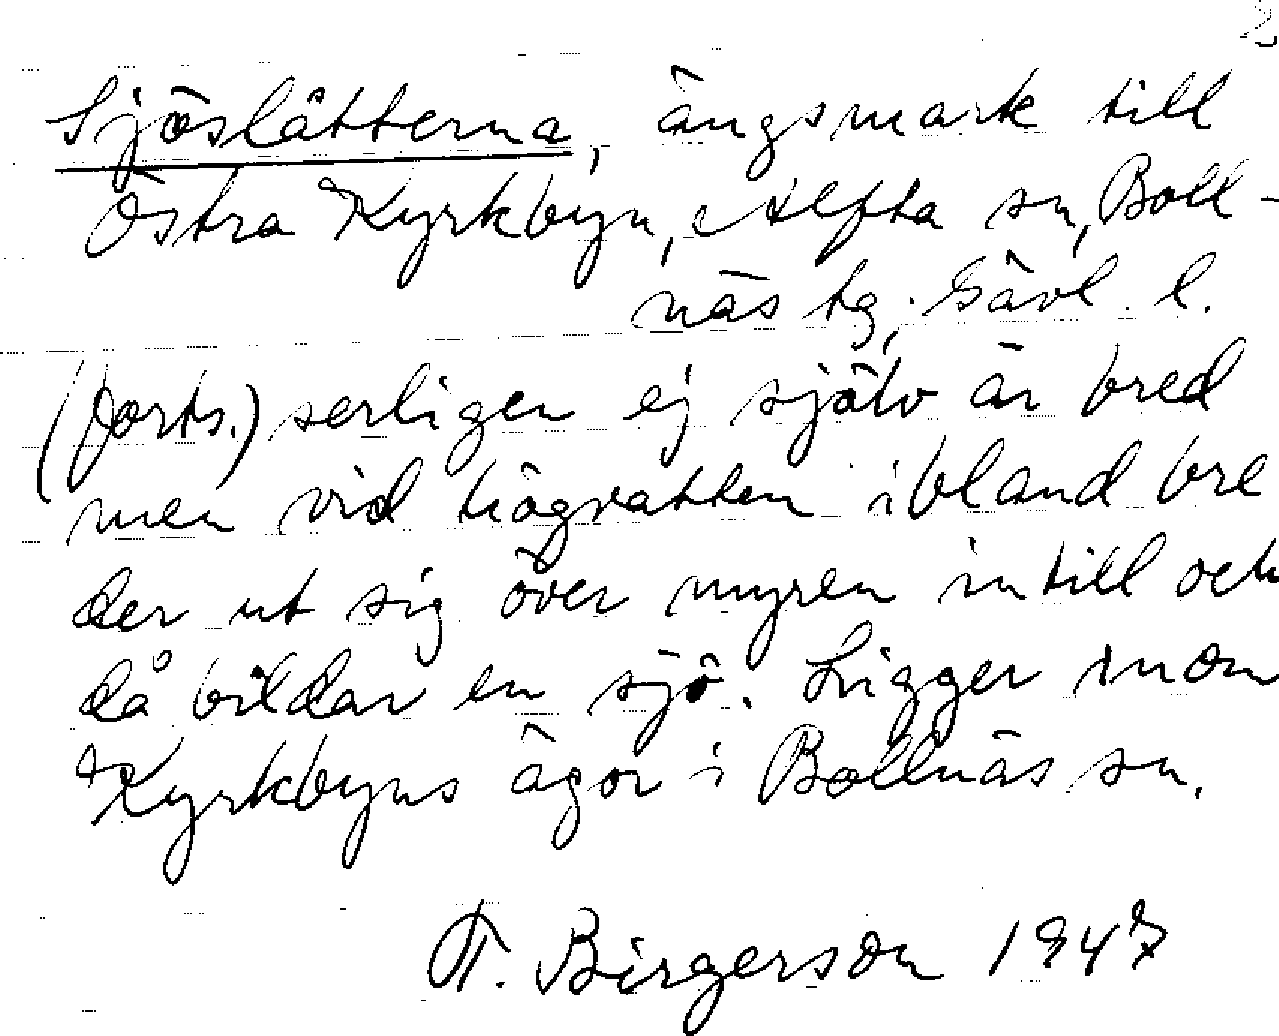 2
Sjöslåtterna, ängsmark till
Östra Kyrkbyn, Alfta sn, Boll-
näs tg, Gävl. l.
(forts.) serligen ej själv är bred
men vid högvatten ibland bre
der ut sig över myren intill och
då bildar en sjö. Ligger inom
Kyrkbyns ägor i Bollnäs sn.
T. Birgerson 1947